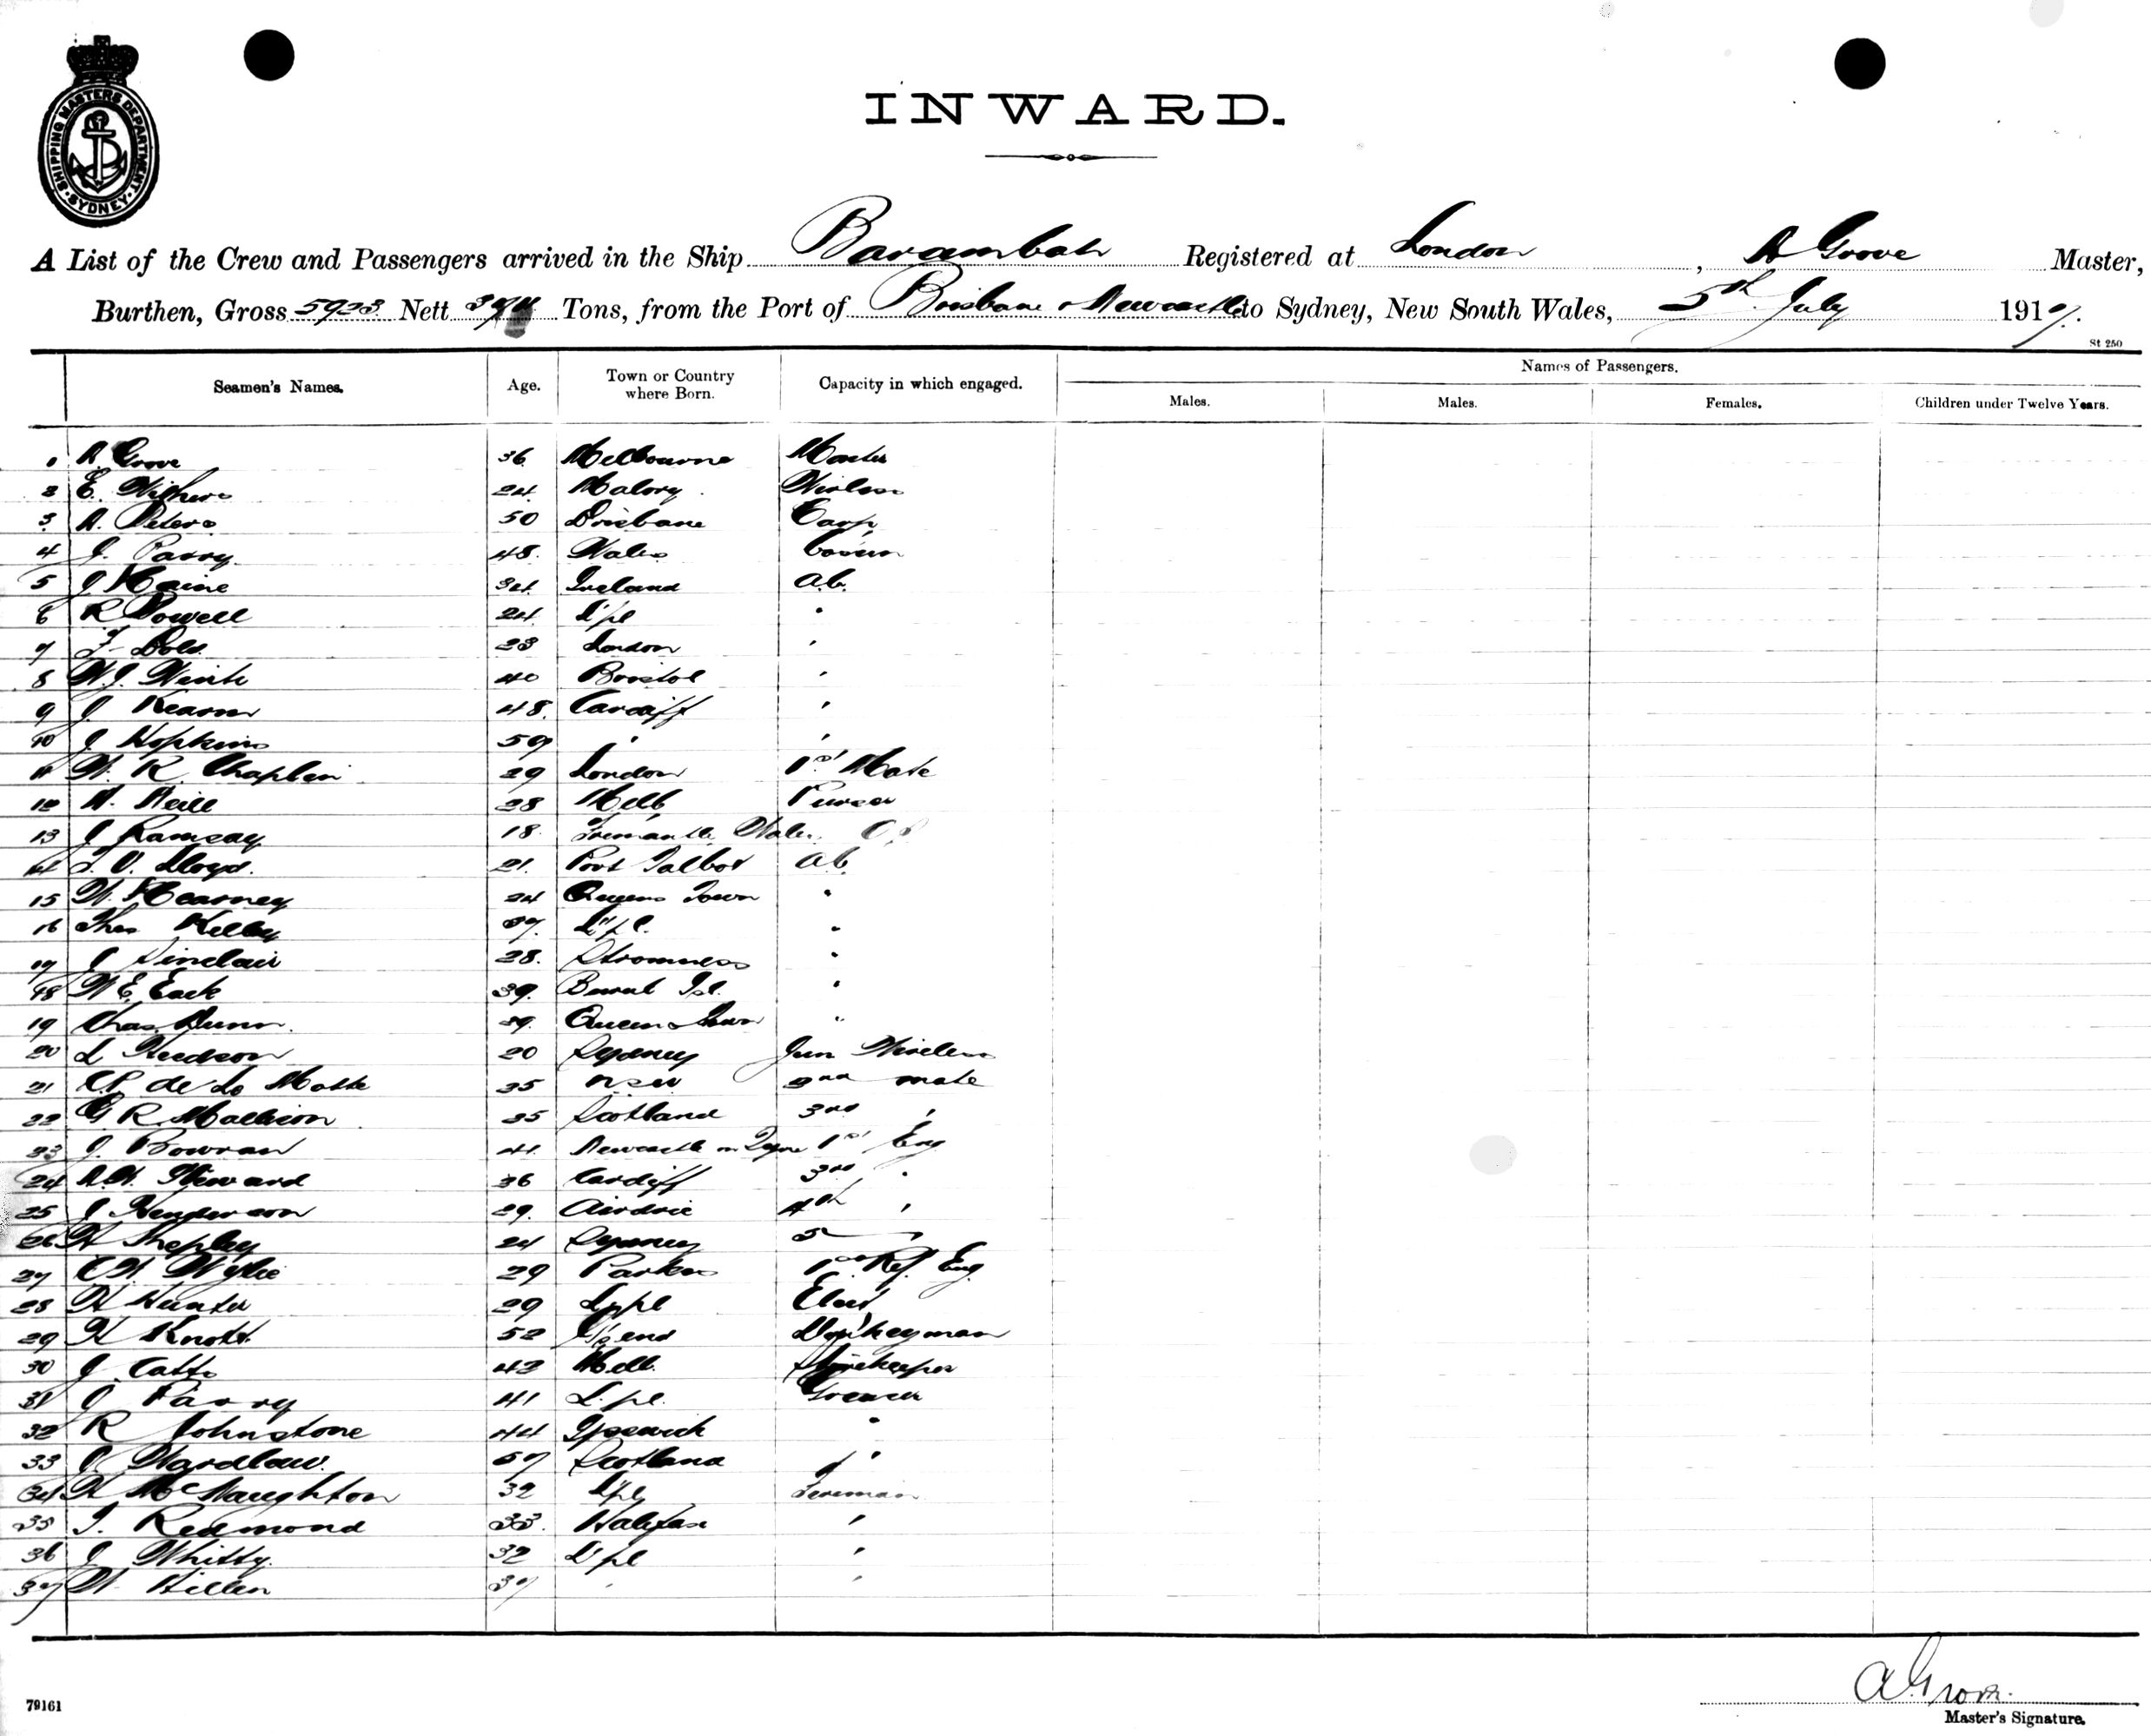 SHIPPING MASTERS DEPARTMENT. SYDNEY
INWARD.
A List of the Crew and Passengers arrived in the Ship Barambah Registered at London, A Grove Master,
Burthen, Gross 5923 Nett Tons, from the Port of Brisbane & Newcastle to Sydney, New South Wales, 5th July 1917.
St 250
Seamen's Names. Age. Town or Country where Born. Capacity in which engaged. Names of Passengers.
Males. Males. Females. Children under Twelve Years.
1 A Grove 36 Melbourne Master
2 E. Withers 24 Wireless
3 A. Peters 50 Brisbane Carp
4 J. Parry 48 Wales
5 J 34 Ireland a.b.
6 R Powell 24 L'pl "
7 F 23 London "
8 W.J. 40 Bristol "
9 J 48 Cardiff "
10 J Hopkins 59 " "
11 W. R. Chaplin 29 London 1st Mate
12 A. Neill 28 Melb Purser
13 J Ramsay 18 Fremantle
14 Lloyd 21 Port Talbot a.b.
15 W. Kearney 24 Queens Town "
16 Thos Kelly 37 L'pl "
17 J Sinclair 28 Stromness "
18 W E 39 "
19 Chas. Dunn 39 Queenstown "
20 L Hudson 20 Sydney Jun Wireless
21 C.P. de La Motte 35 NSW 2nd mate
22 G. R. Mallison 35 Scotland 3rd "
23 J. Bowran 41 Newcastle on Tyne 1st Eng
24 36 Cardiff 3rd "
25 J Henderson 29 Airdrie 4th "
26 H Shepley 24 Sydney 5 "
27 C.W. Wylie 29 Parkes 1st Ref. Eng.
28 H Hunter 29 L'pl Elect
29 H Knott 52 G's end Donkeyman
30 J Catto 42 Melb. Storekeeper
31 J Parry 41 L'pl Greaser
32 R Johnstone 44 Ipswich "
33 J Wardlaw 57 Scotland "
34 H McNaughton 32 L'pl Fireman
35 T. Redmond 33 Halifax "
36 J Whitty 32 L'pl "
37 W Killen 37 " "
79161
A Grove
Master's Signature.